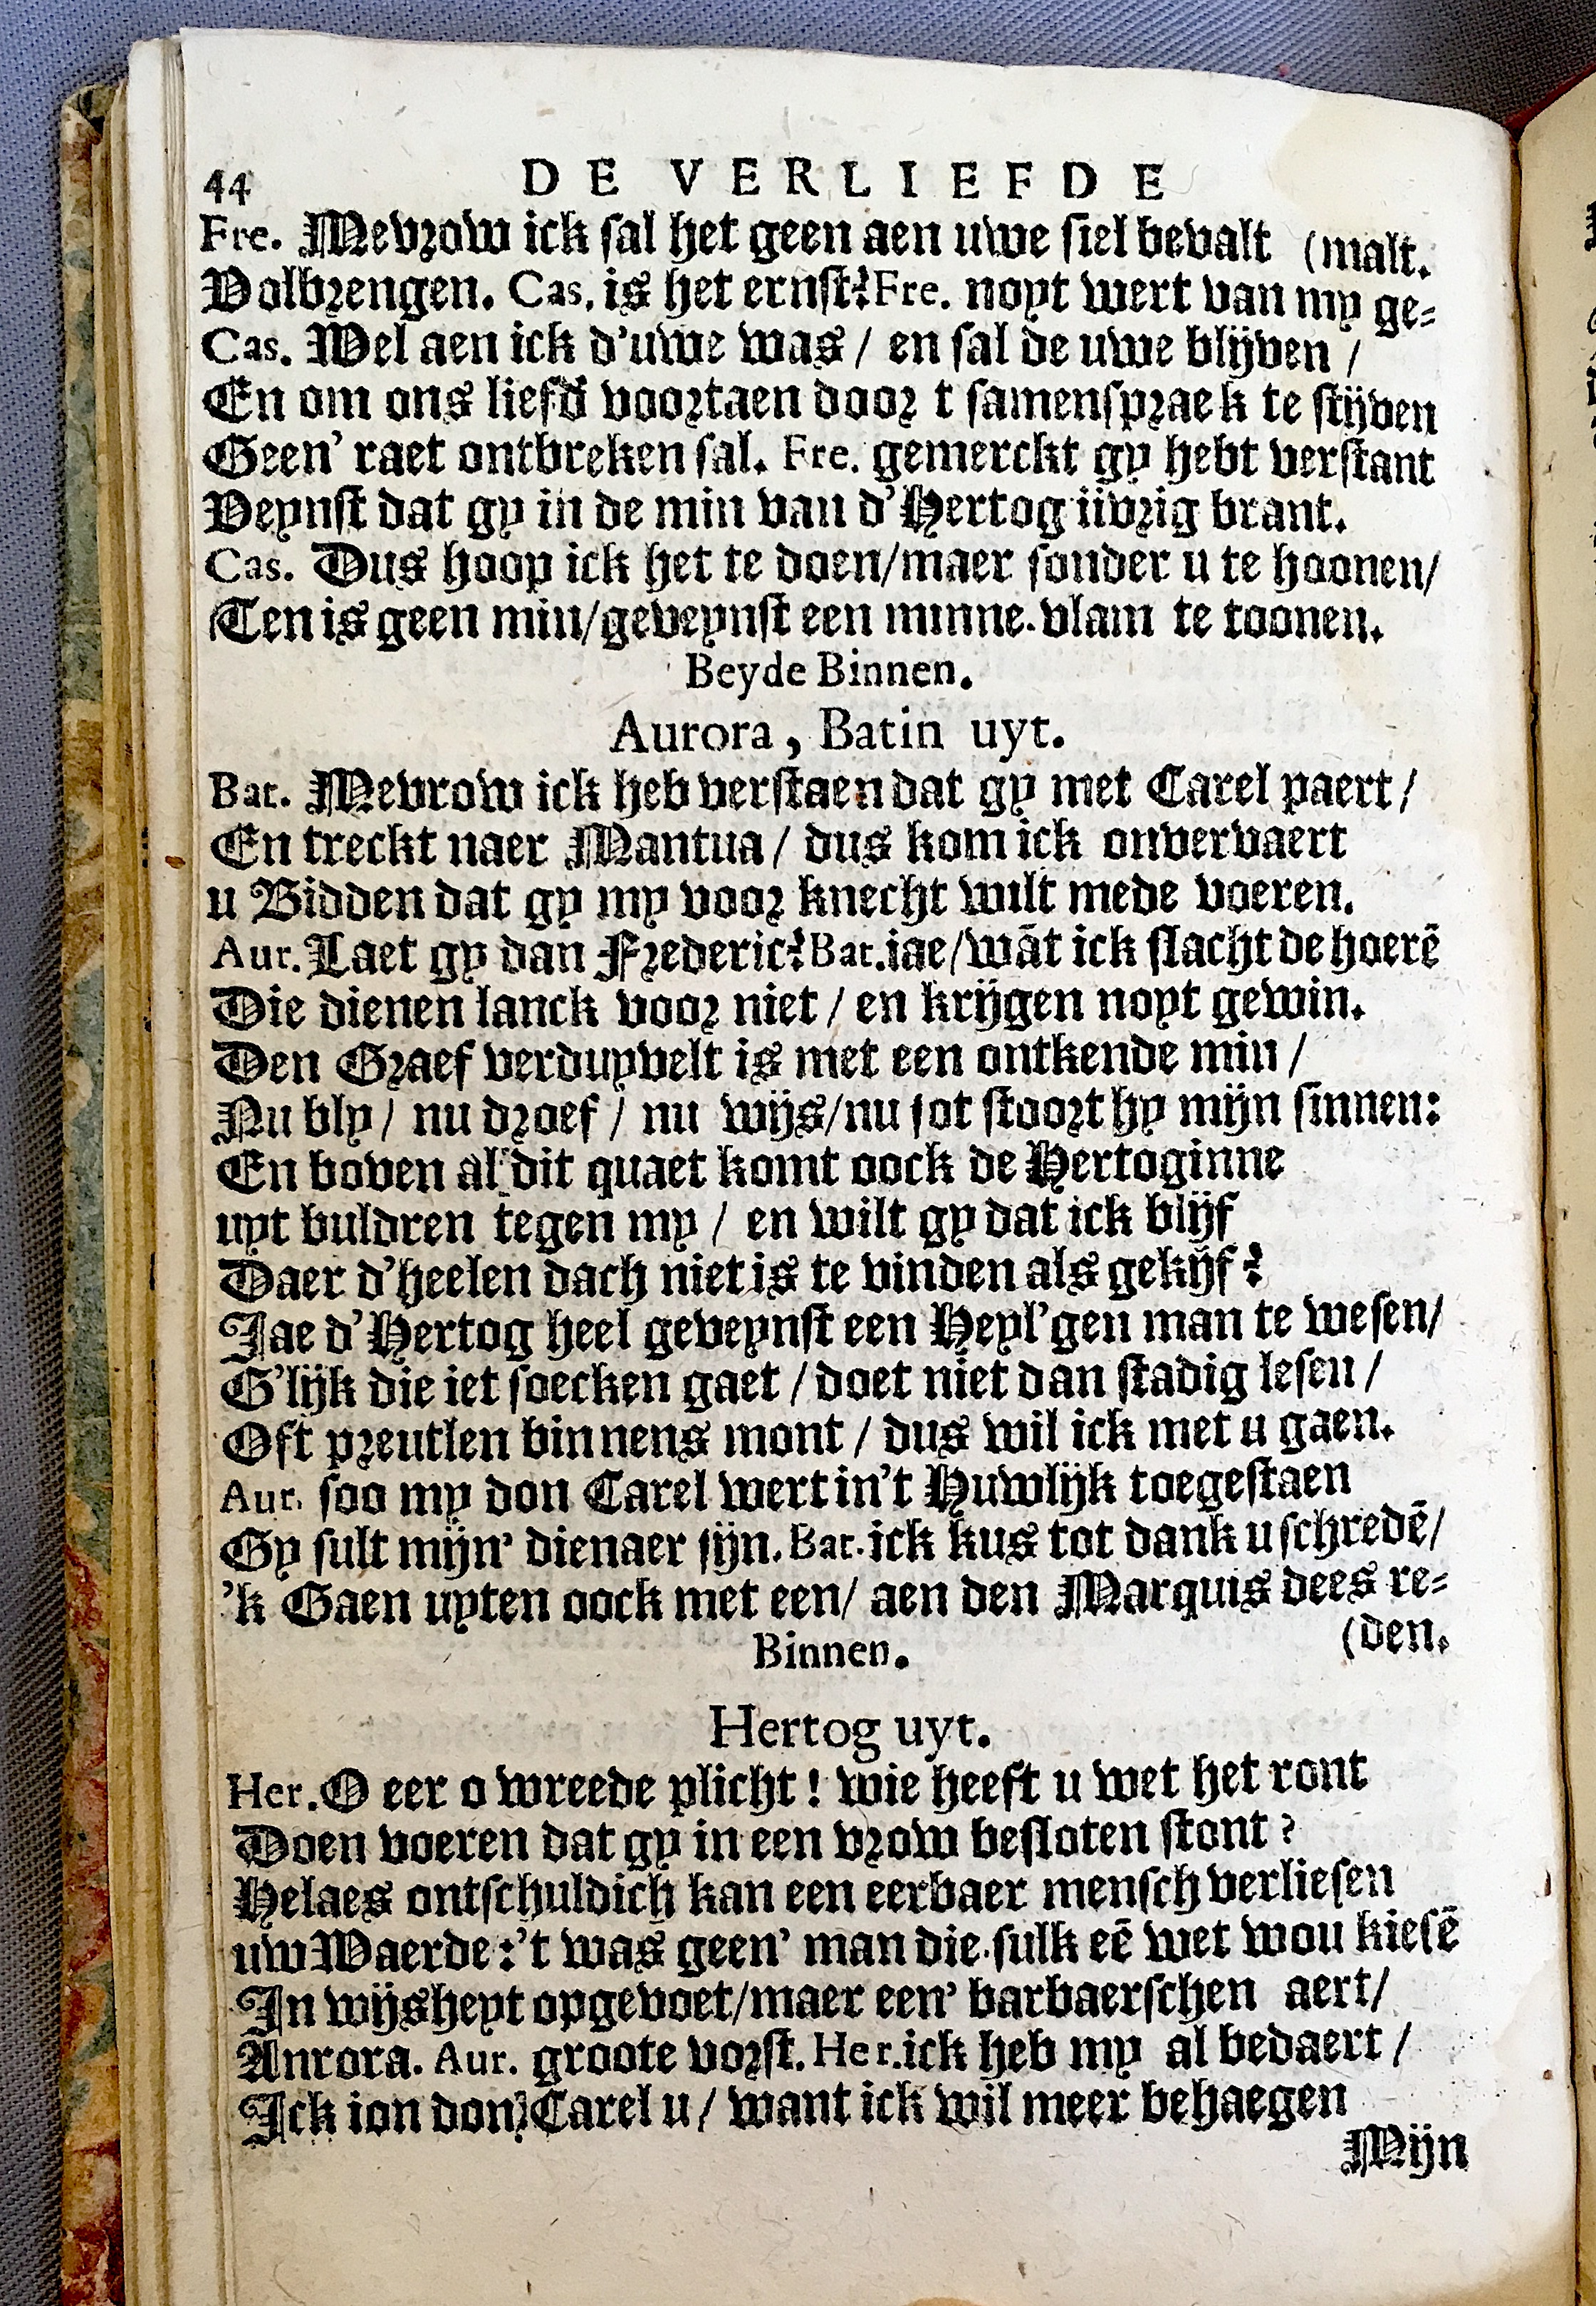 44 DE VERLIEFDE
Fre. Mevrow ick sal het geen aen uwe siel bevalt (malt.
Volbrengen. Cas. is het ernst? Fre. noyt wert van my ge-
Cas. Wel aen ick d'uwe was / en sal de uwe blijven /
En om ons liefd' voortaen door t samenspraek te stijven
Geen' raet ontbreken sal. Fre. gemerckt gy hebt verstant
Veynst dat gy in de min van d'Hertog iivrig brant.
Cas. Dus hoop ick het te doen/maer sonder u te hoonen/
Ten is geen min/geveynst een minne-vlam te toonen.
Beyde Binnen.
Aurora, Batin uyt.
Bat. Mevrow ick heb verstaen dat gy met Carel paert /
En treckt naer Mantua / dus kom ick onvervaert
u Bidden dat gy my voor knecht wilt mede voeren.
Aur. Laet gy dan Frederic? Bat. iae/wāt ick slacht de hoerē
Die dienen lanck voor niet / en krijgen noyt gewin.
Den Graef verduyvelt is met een ontkende min /
Nu bly / nu droef / nu wijs/nu sot stoort hy mijn sinnen:
En boven al dit quaet komt oock de Hertoginne
uyt buldren tegen my / en wilt gy dat ick blijf
Daer d'heelen dach niet is te vinden als gekijf?
Jae d'Hertog heel geveynst een Heyl'gen man te wesen/
G'lijk die iet soecken gaet / doet niet dan stadig lesen /
Oft preutlen binnens mont / dus wil ick met u gaen.
Aur. soo my don Carel wert in't Huwlijk toegestaen
Gy sult mijn' dienaer sijn. Bat. ick kus tot dank u schredē/
'k Gaen uyten oock met een/ aen den Marquis dees re-
(den.
Binnen.
Hertog uyt.
Her. O eer o wreede plicht ! wie heeft u wet het ront
Doen voeren dat gy in een vrow besloten stont ?
Helaes ontschuldich kan een eerbaer mensch verliesen
uw Waerde : 't was geen' man die sulk eē wet wou kiesē
In wijsheyt opgevoet/maer een' barbaerschen aert/
Anrora. Aur. groote vorst. Her. ick heb my al bedaert /
Ick ion don Carel u / want ick wil meer behaegen
Mijn